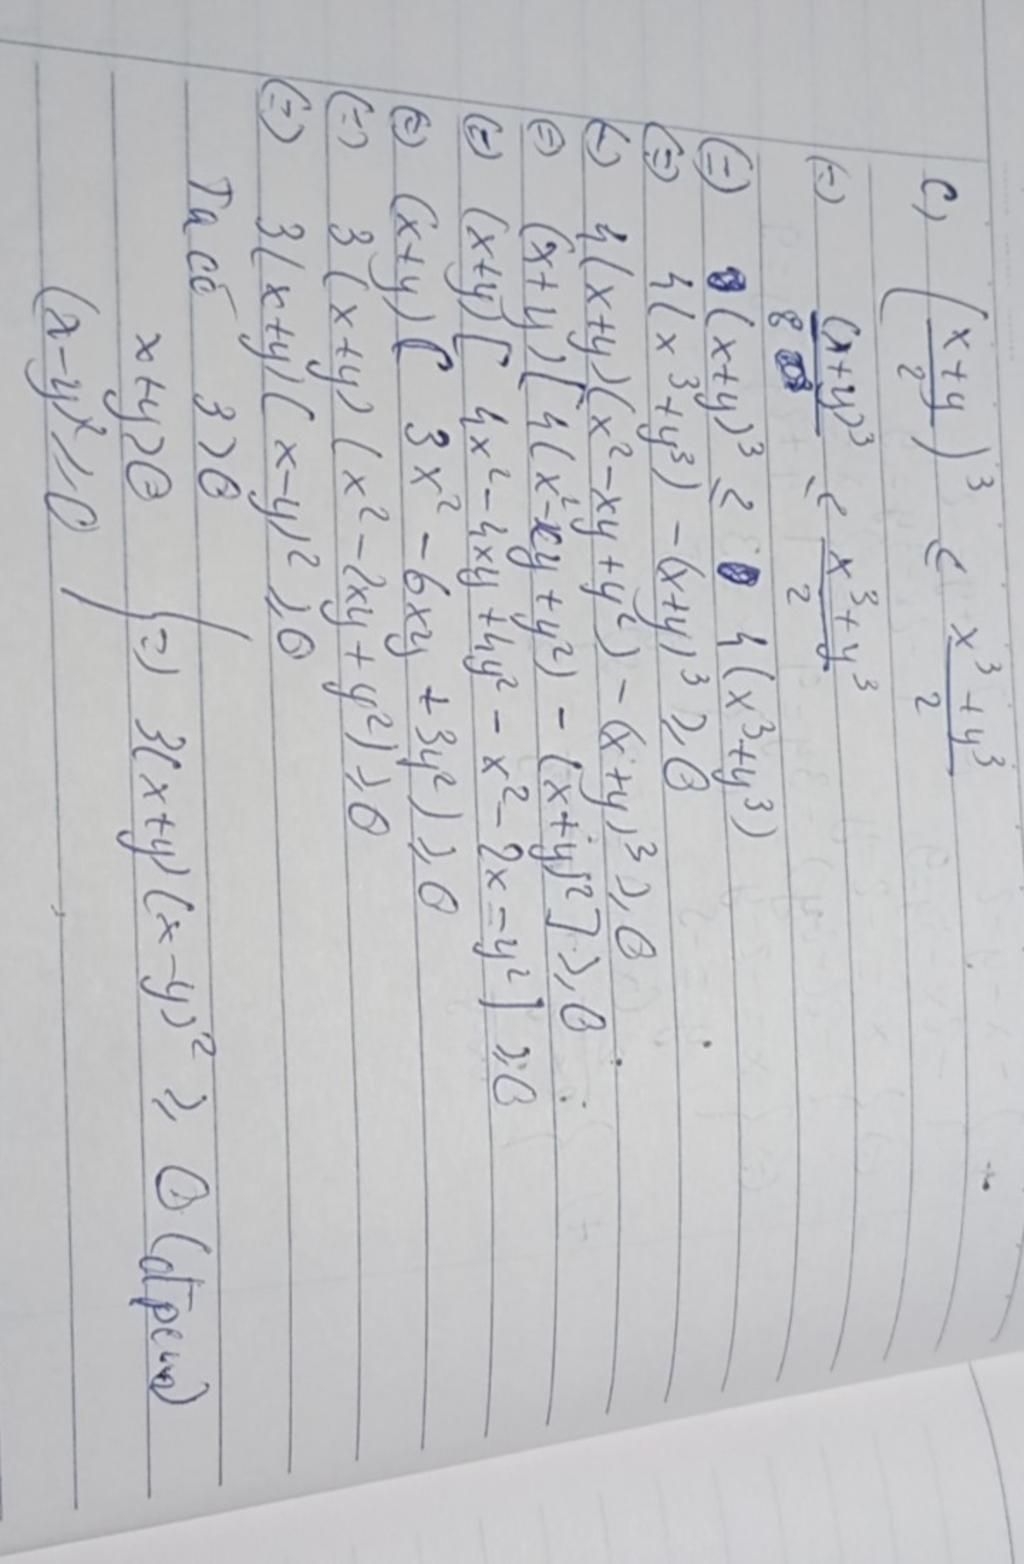 c, (x+y/2)³ ≤ x³+y³/2
(=) (x+y)³/8 ≤ x³+y³/2
(=) (x+y)³ ≤ 4(x³+y³)
(=) 4(x³+y³) - (x+y)³ ≥ 0
(=) 4(x+y)(x²-xy+y²) - (x+y)³ ≥ 0
(=) (x+y)[4(x²-xy+y²) - (x+y)²] ≥ 0
(=) (x+y)[4x²-4xy+4y² - x² - 2x = y²] ≥ 0
(=) (x+y)(3x² - 6xy + 3y²) ≥ 0
(=) 3(x+y)(x²-2xy+y²) ≥ 0
(=) 3(x+y)(x-y)² ≥ 0
Ta có 3>0
x+y>0 } =) 3(x+y)(x-y)² ≥ 0 (đpcm)
(x-y)² ≥ 0